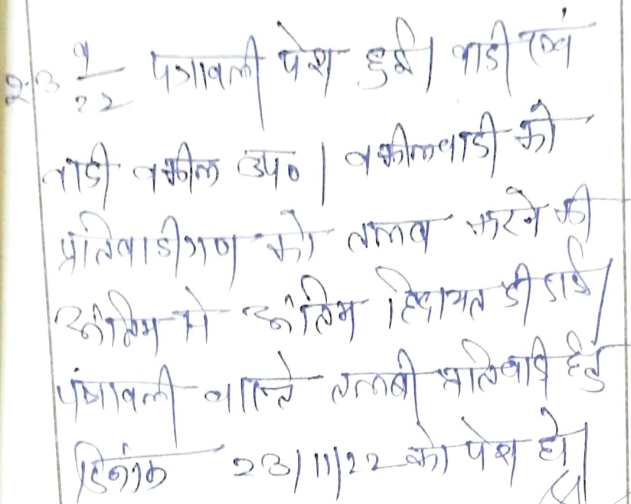 23/9/22 पत्रावली पेश हुई। वादी एवं
वादी वकील उप०। वकील वादी को
प्रतिवादीगण को तलब करने की
अंतिम से अंतिम हिदायत दी गई।
पत्रावली वास्ते तलबी प्रतिवादी हेतु
दिनांक 23/11/22 को पेश हो।